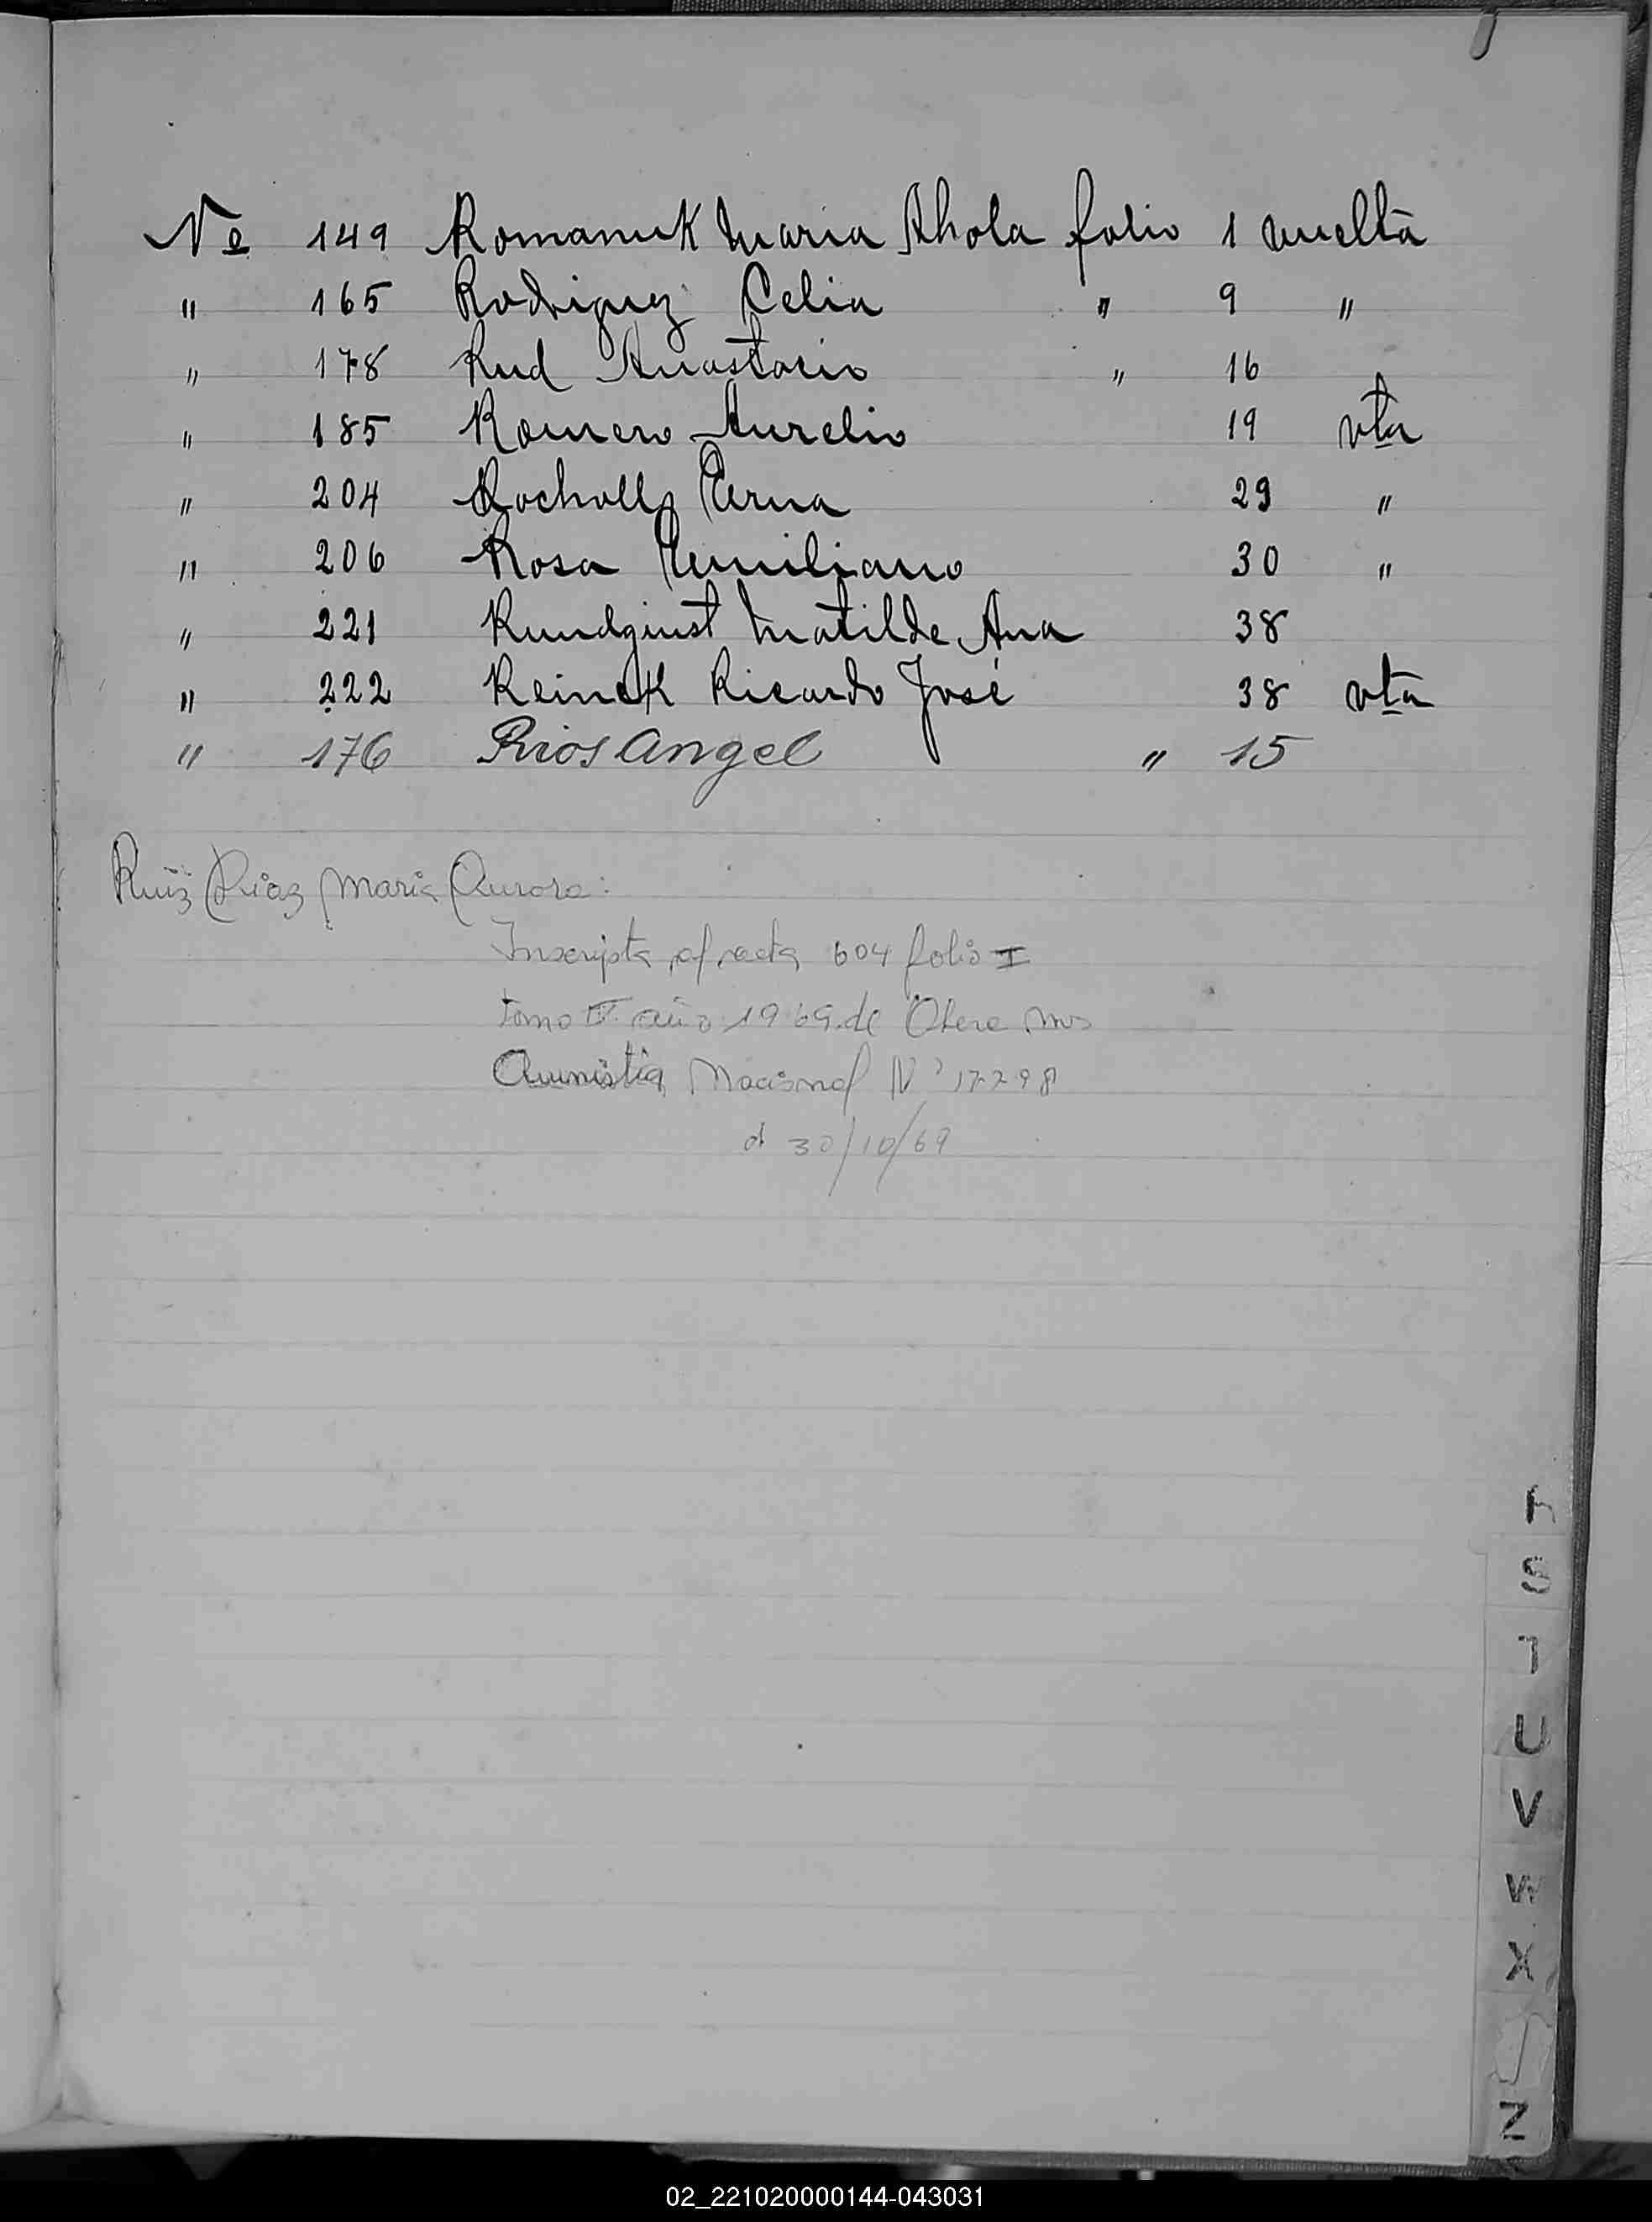 Nº 149 Romanuk Maria Ahola folio 1 vuelta
" 165 Rodriguez Celia " 9 "
" 178 Rud Anastacio " 16
" 185 Romero Aurelio 19 vta
" 204 Rocholl Erna 29 "
" 206 Rosa Emiliano 30 "
" 221 Rundquist Matilde Ana 38
" 222 Reinek Ricardo José 38 vta
" 176 Rios Angel " 15
Ruiz Diaz Maria Aurora:
Inscripta acta 604 folio I
tomo IV año 1969 de Obera Mns
Amnistia Nacional Nº 17298
d 30/10/69
R
S
T
U
V
W
X
Z
02_221020000144-043031